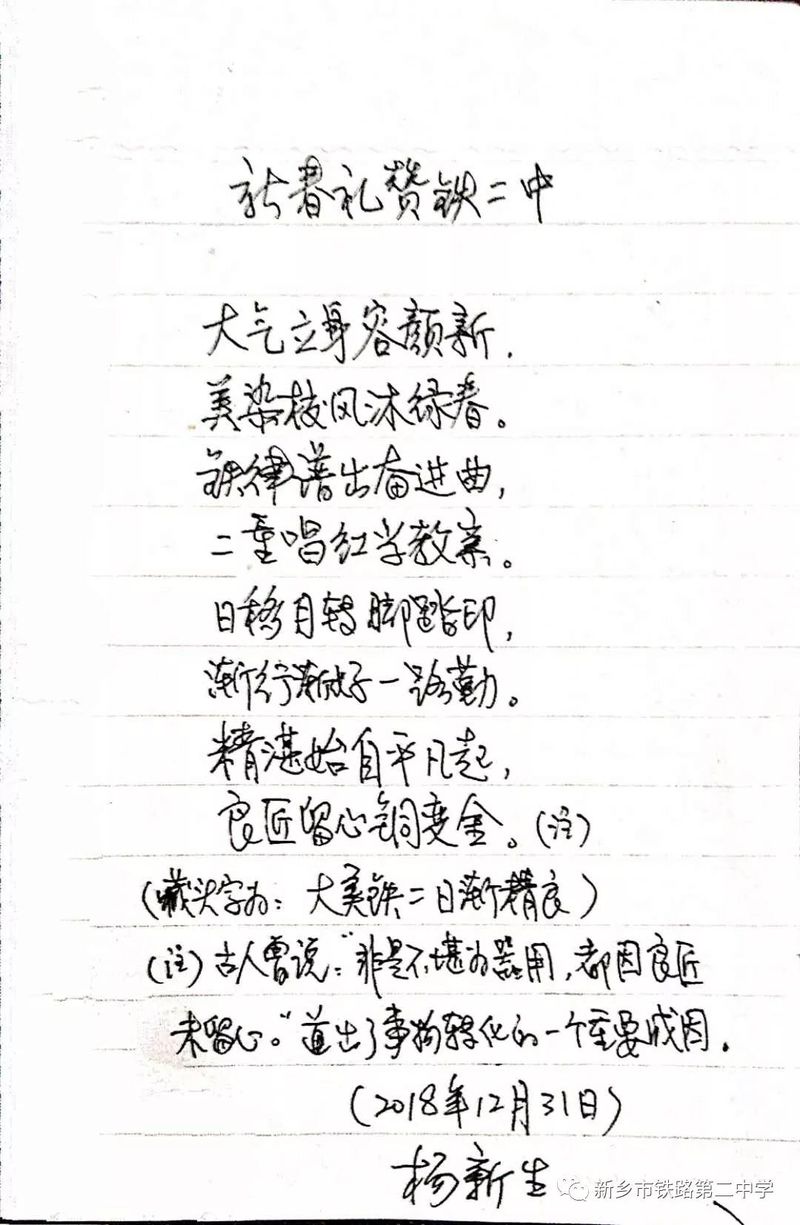 新春礼赞铁二中
大气立身容颜新，
美染校风沐绿春。
铁律谱出奋进曲，
二重唱红学教案。
日移月转脚踏印，
渐行渐好一路勤。
精湛始自平凡起，
良匠留心铜变金。(注)
(藏头字为：大美铁二日渐精良)
(注)古人曾说："非是不堪为器用，都因良匠
未留心。"道出了事物转化的一个重要成因．
(2018年12月31日)
杨新生
新乡市铁路第二中学